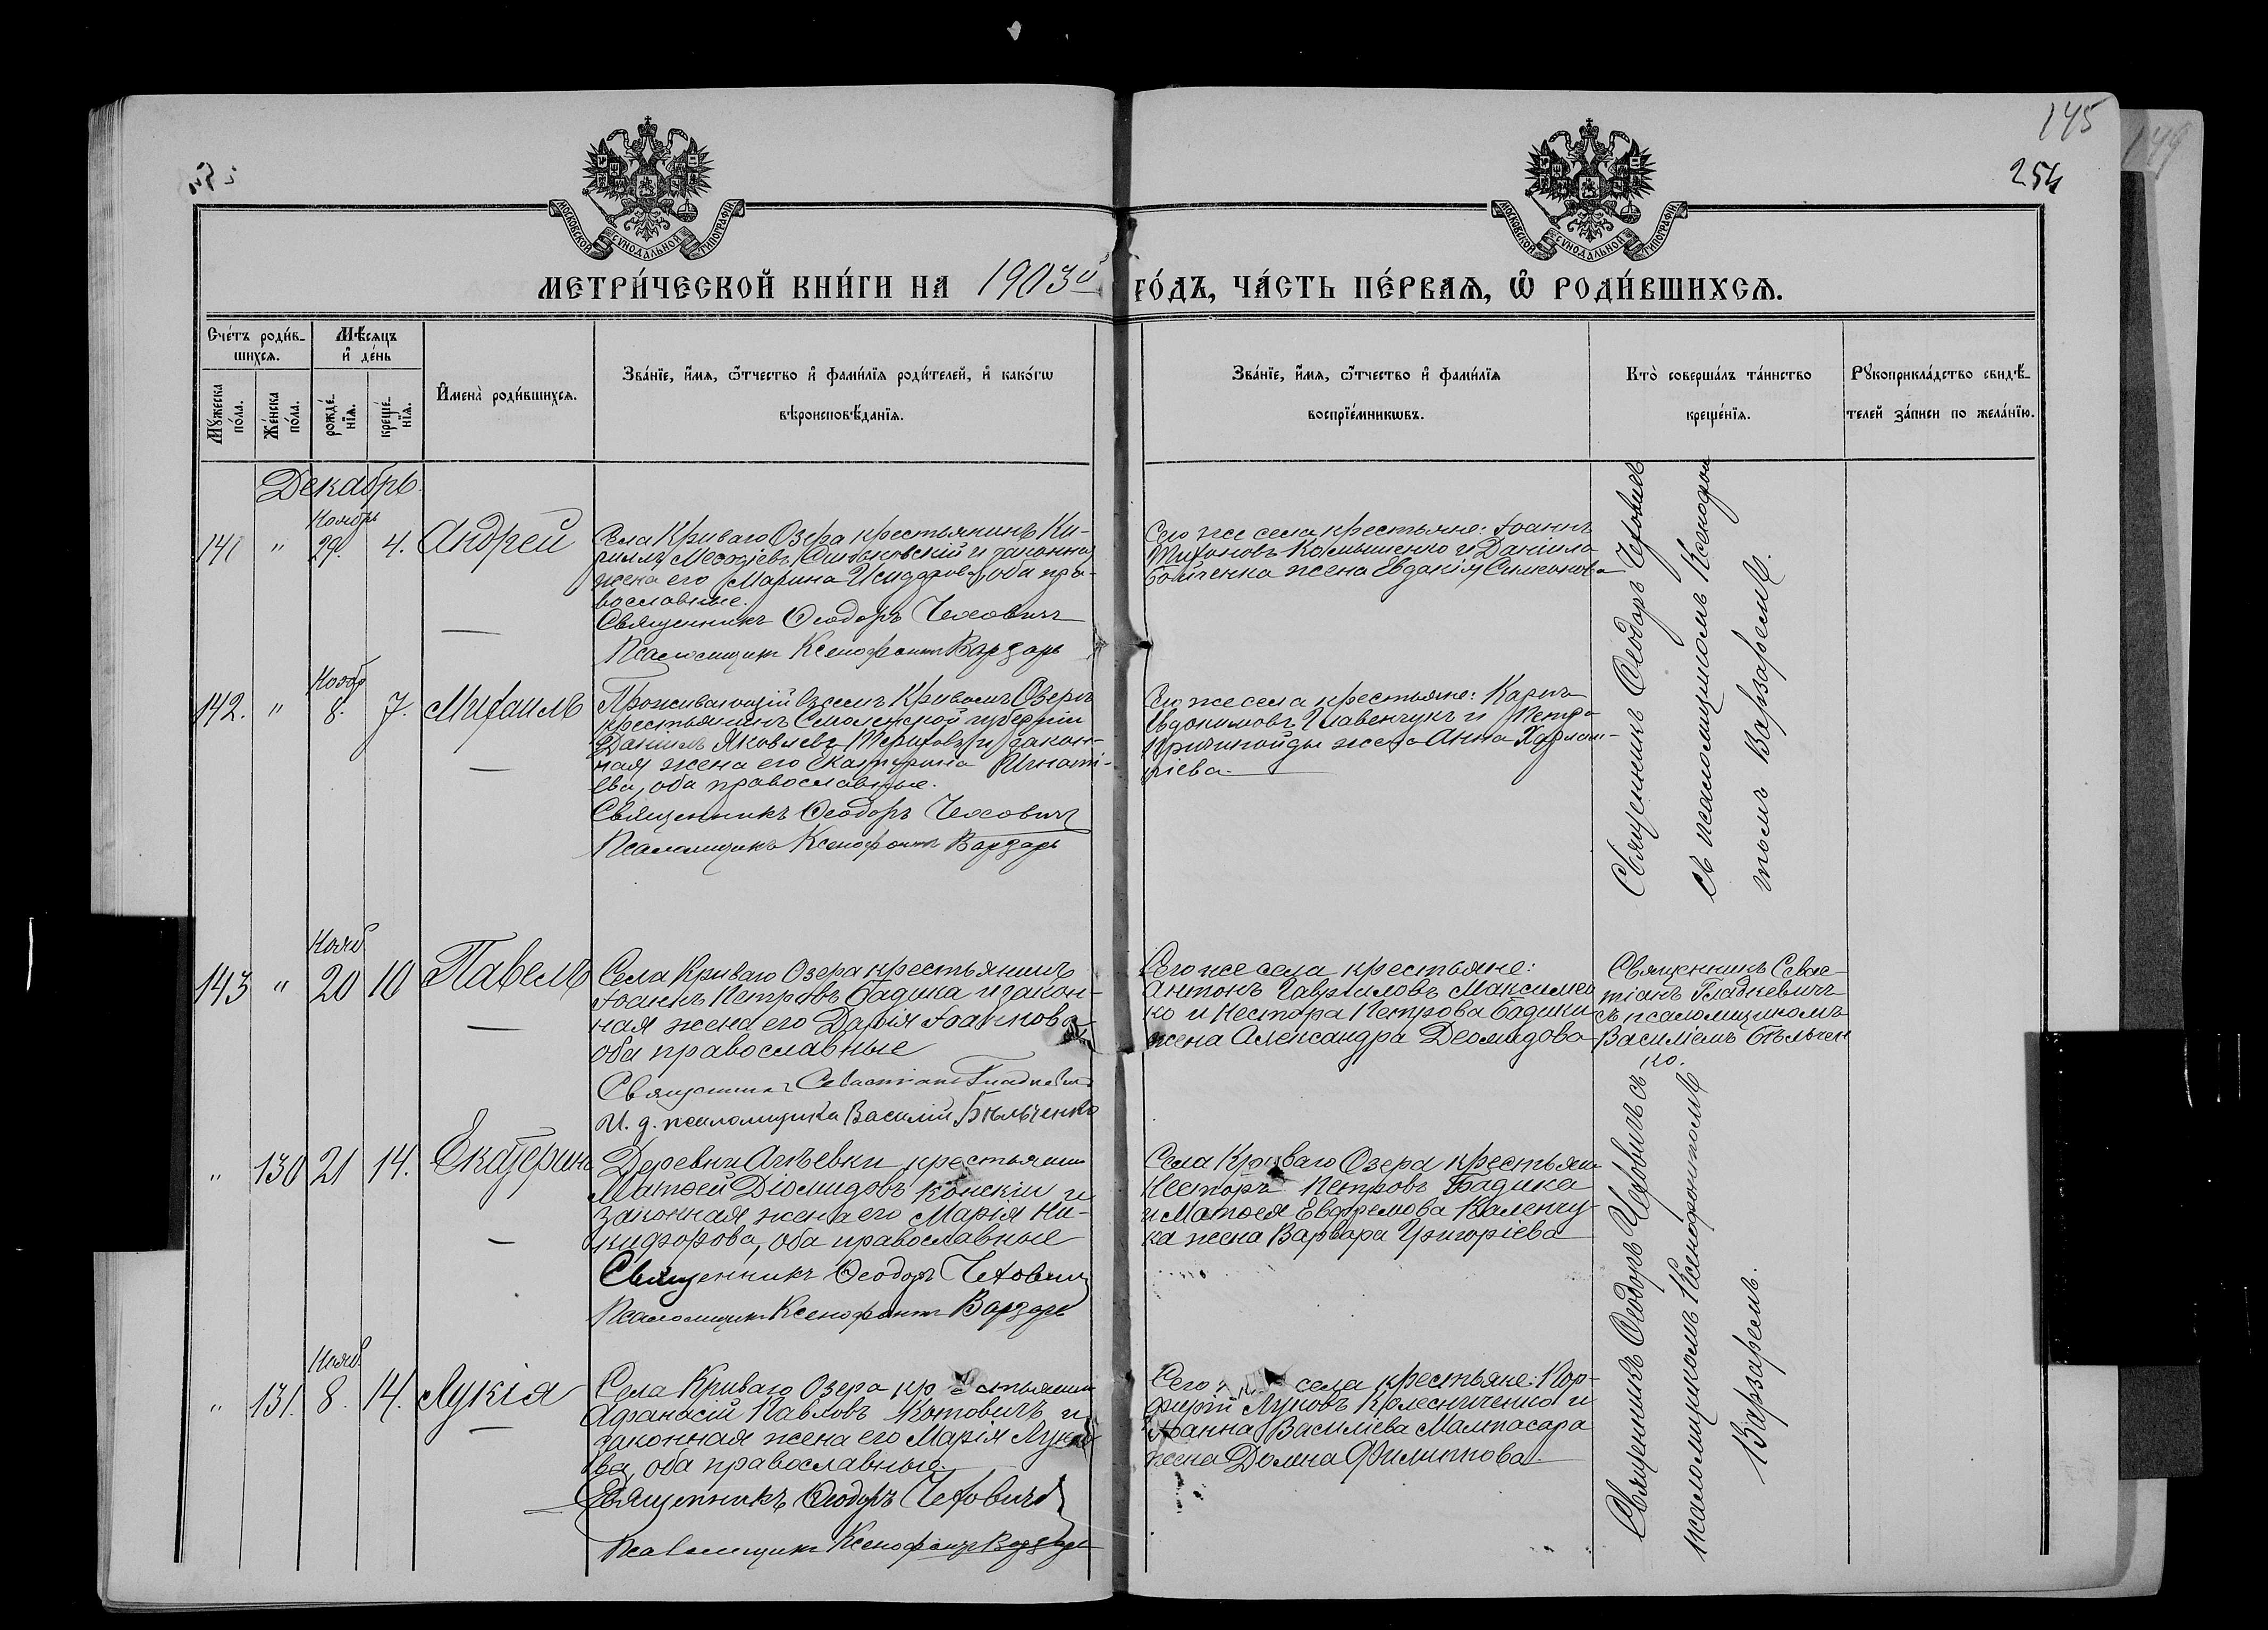 145
149
254
МОСКОВСКОЙ СѴНОДАЛЬНОЙ ТИПОГРАФІИ
МОСКОВСКОЙ СѴНОДАЛЬНОЙ ТИПОГРАФІИ
МЕТРИ́ЧЕСКОЙ КНИ́ГИ НА 1903й ГО́ДЪ, ЧА́СТЬ ПЕ́РВАѦ, Ѽ РОДИ́ВШИХСѦ.
Сче́тъ роди́в-
шихсѧ.
Мꙋжеска по́ла.
Же́нска по́ла.
Мѣ́сѧцъ и де́нь
рожде́-
нїѧ.
креще́-
нїѧ.
Имена̀ роди́вшихсѧ.
Зва́нїе, и́мѧ, ѻ҆́тчество и фами́лїѧ роди́телей, и како́гѡ
вѣроисповѣ́данїѧ.
Зва́нїе, и́мѧ, ѻ҆́тчество и фами́лїѧ
воспрїе́мникѡвъ.
Кто̀ соверша́лъ та́инство
креще́нїѧ.
Рꙋкоприкла́дство свидѣ́-
телей за́писи по жела́нїю.
Декабрь.
141 " Ноябрь 29. 4. Андрей
Села Криваго Озера крестьянинъ Ки-
риллъ Меѳодіевъ и законная
жена его Марина Исидорова, оба пра-
вославные.
Священникъ Ѳеодоръ Чеховичъ
Псаломщикъ Ксенофонтъ Варзарь
Сего же села крестьяне: Іоаннъ
Тихоновъ и Даніила
Бойченка жена Евдокія Симеонова
Священникъ Ѳеодоръ Чеховичъ
съ псаломщикомъ Ксенофон-
томъ Варзаремъ.
142. " Нояб 8. 7. Михаилъ
Проживающій въ селѣ Кривомъ Озерѣ
крестьянинъ Смоленской губерніи
Даніилъ Яковлевъ и закон-
ная жена его Екатерина Игнаті-
ева, оба православные.
Священникъ Ѳеодоръ Чеховичъ
Псаломщикъ Ксенофонтъ Варзарь
Сего же села крестьяне: Карпъ
Евдокимовъ и Петра
жена Анна Харлам-
піева.
143 " Нояб. 20 10 Павелъ
Села Криваго Озера крестьянинъ
Іоаннъ Петровъ Бадика и закон-
ная жена его Дарія Іоаннова
оба православные
Священникъ Севастіанъ Гладкевичъ
И. д. псаломщика Василій Бѣльченко
Сего же села крестьяне:
Антонъ Гавриловъ Максимен
ко и Нестора Петрова Бадики
жена Александра Деомидова
Священникъ Севас-
тіанъ Гладкевичъ
съ псаломщикомъ
Василіемъ Бѣльчен
ко.
" 130 21 14. Екатерина
Деревни крестьянинъ
Матѳей Діомидовъ Конскій и
законная жена его Марія Ни-
кифорова, оба православные
Священникъ Ѳеодоръ Чеховичъ
Псаломщикъ Ксенофонтъ Варзарь
Села Криваго Озера крестьяне
Несторъ Петровъ Бадика
и Матѳея Евфремова Каленчу-
ка жена Варвара Григоріева
Священникъ Ѳеодоръ Чеховичъ съ
псаломщикомъ Ксенофонтомъ
Варзаремъ.
" 131. Нояб. 8. 14. Лукія
Села Криваго Озера крестьянинъ
Афанасій Павловъ Котовичъ и
законная жена его Марія Луко-
ва, оба православные.
Священникъ Ѳеодоръ Чеховичъ
Псаломщикъ Ксенофонтъ Варзарь
Сего же села крестьяне: Пор-
фирій Луковъ Колесниченко и
Іоанна Василіева Малтасара
жена Домна Филиппова.